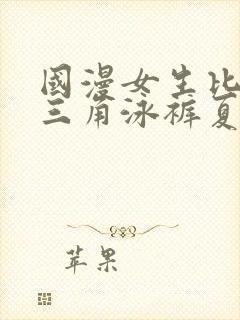 國漫女生比
三角泳裤夏
苹果